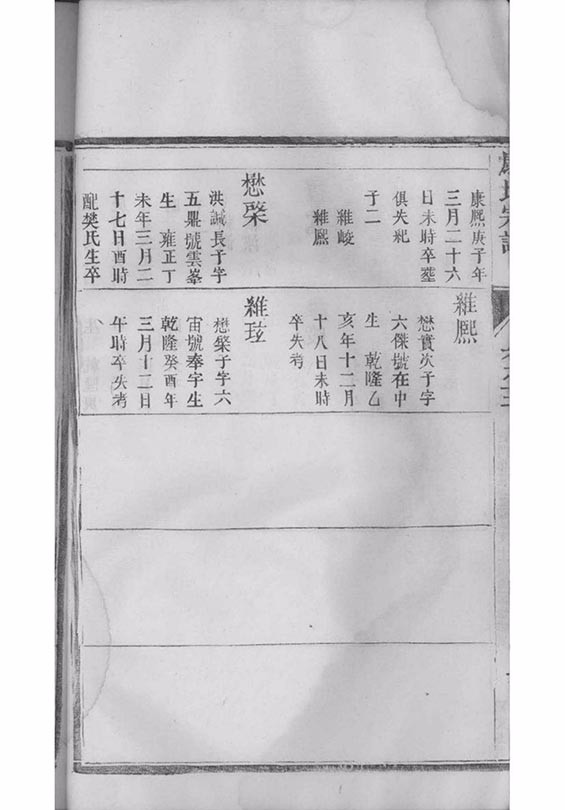 康熙庚子年
三月二十六
日未時卒塟
俱失紀
子二
維峻
維熙
懋棨
洪諴長子字
五鼎號雲峯
生　雍正丁
未年三月二
十七日酉時
配樊氏生卒
維熙
懋實次子字
六傑號在中
生　乾隆乙
亥年十二月
十八日未時
卒失考
維
懋棨子字六
宙號奉宇生
乾隆癸酉年
三月十二日
午時卒失考